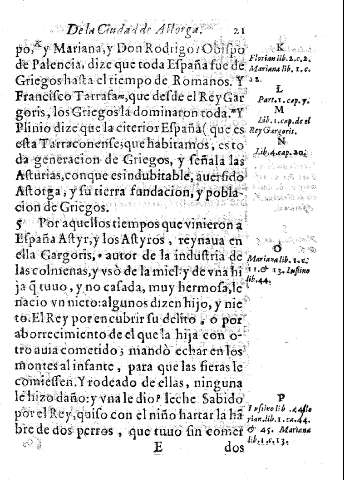 De la Ciudad de Astorga. 21
po,ᴷ y Mariana, y Don Rodrigo, Obispo
de Palencia, dize que toda España fue de
Griegos hasta el tiempo de Romanos. Y
Francisco Tarrafaᵐ, que desde el Rey Gar
goris, los Griegos la dominaron toda.ⁿ Y
Plinio dize que la citerior España ( que es
esta Tarraconense, que habitamos, es to
da generacion de Griegos, y señala las
Asturias, con que es indubitable, aver sido
Astorga, y su tierra fundacion, y pobla-
cion de Griegos.
5 Por aquellos tiempos que vinieron a
España Astyr, y los Astyros, reynaua en
ella Gargoris, º autor de la industria de
las colmenas, y vsò de la miel y de vna hi
ja q̃ tuuo, y no casada, muy hermosa, le
nacio vn nieto: algunos dizen hijo, y nie
to. El Rey por encubrir su delito, o por
aborrecimiento de el que la hija con o-
tro auia cometido; mandò echar en los
montes al infante, para que las fieras le
comiessen. Y rodeado de ellas, ninguna
le hizo daño: y vna le dioᵖ leche Sabido
por el Rey, quiso con el niño hartar la hã
bre de dos perros, que tuuo sin comer
E dos
K
Florian lib. 2. c. 2.
Mariana lib. 1. c.
12.
L
Part. 1. cap. 7.
M
Lib. 1. cap. de el
Rey Gargoris.
N
Lib. 4. cap. 20.
O
Mariana lib. 1. c.
11. & 13. Iustino
lib. 44.
P
Iustino lib. 44. Flo
rian. lib. 1. ca. 44.
& 45. Mariana
lib. 1. c. 13.